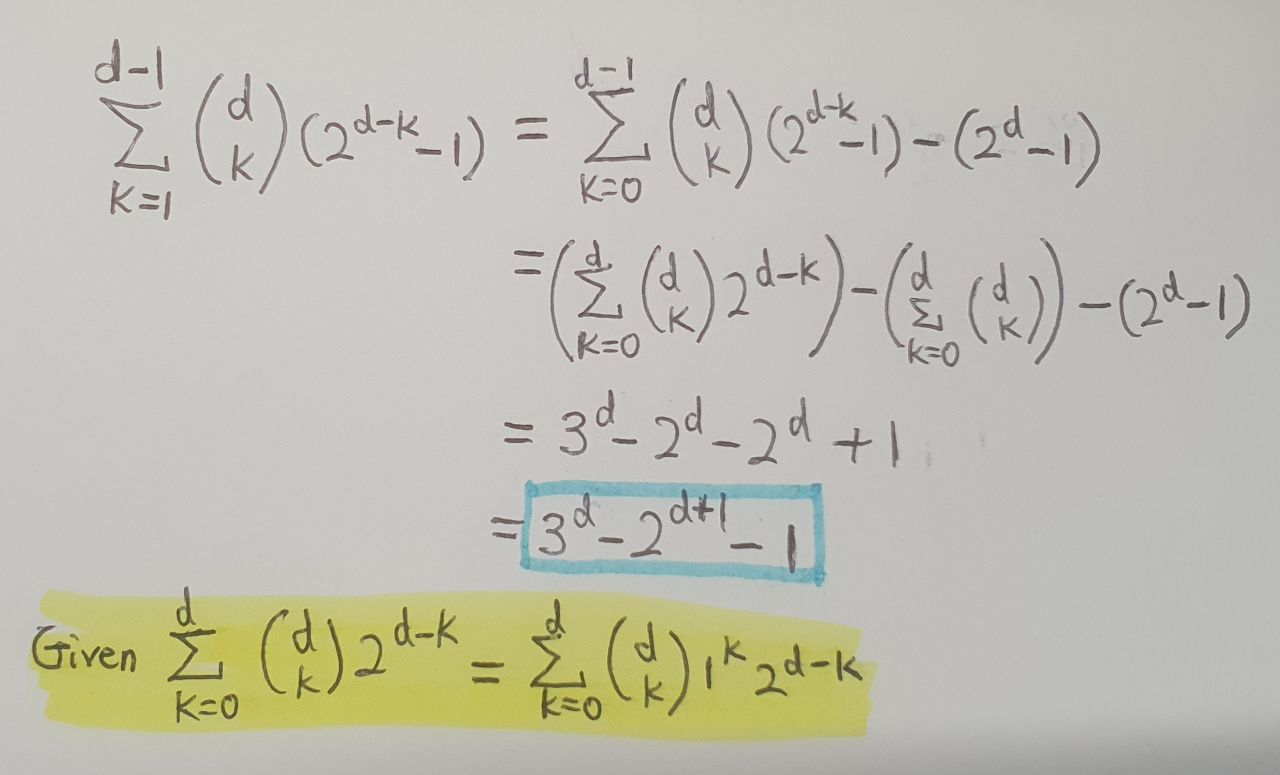 \sum_{k=1}^{d-1} \binom{d}{k} (2^{d-k}-1) = \sum_{k=0}^{d-1} \binom{d}{k} (2^{d-k}-1) - (2^d-1)
= \left( \sum_{k=0}^{d} \binom{d}{k} 2^{d-k} \right) - \left( \sum_{k=0}^{d} \binom{d}{k} \right) - (2^d-1)
= 3^d - 2^d - 2^d + 1
= 3^d - 2^{d+1} - 1
Given \sum_{k=0}^{d} \binom{d}{k} 2^{d-k} = \sum_{k=0}^{d} \binom{d}{k} 1^k 2^{d-k}